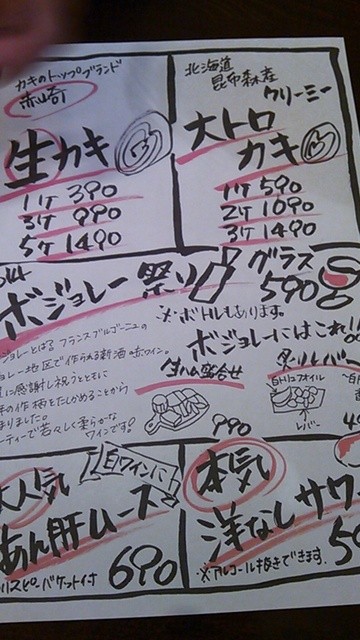 カキのトップブランド
赤崎
生カキ
1ケ 390
3ケ 990
5ケ 1490
北海道
昆布森産
クリーミー
大トロ
カキ
1ケ 590
2ケ 1090
3ケ 1490
ボジョレー祭り
グラス
590
※ボトルもあります。
ボジョレーにはこれ!!
ジョレーとはフランスブルゴーニュの
ジョレー地区で作られる新酒赤ワイン。
に感謝し祝うとともに
の作柄をたしかめることから
まりました。
ティーで若々しく柔らかな
ワインです!
生ハム盛合せ
990
炙りレバー
白トリュフオイル
レバー
大人気
白ワインに
あん肝ムース
リスピーバゲット付
690
本気
洋なしサワ
※アルコール抜きできます。